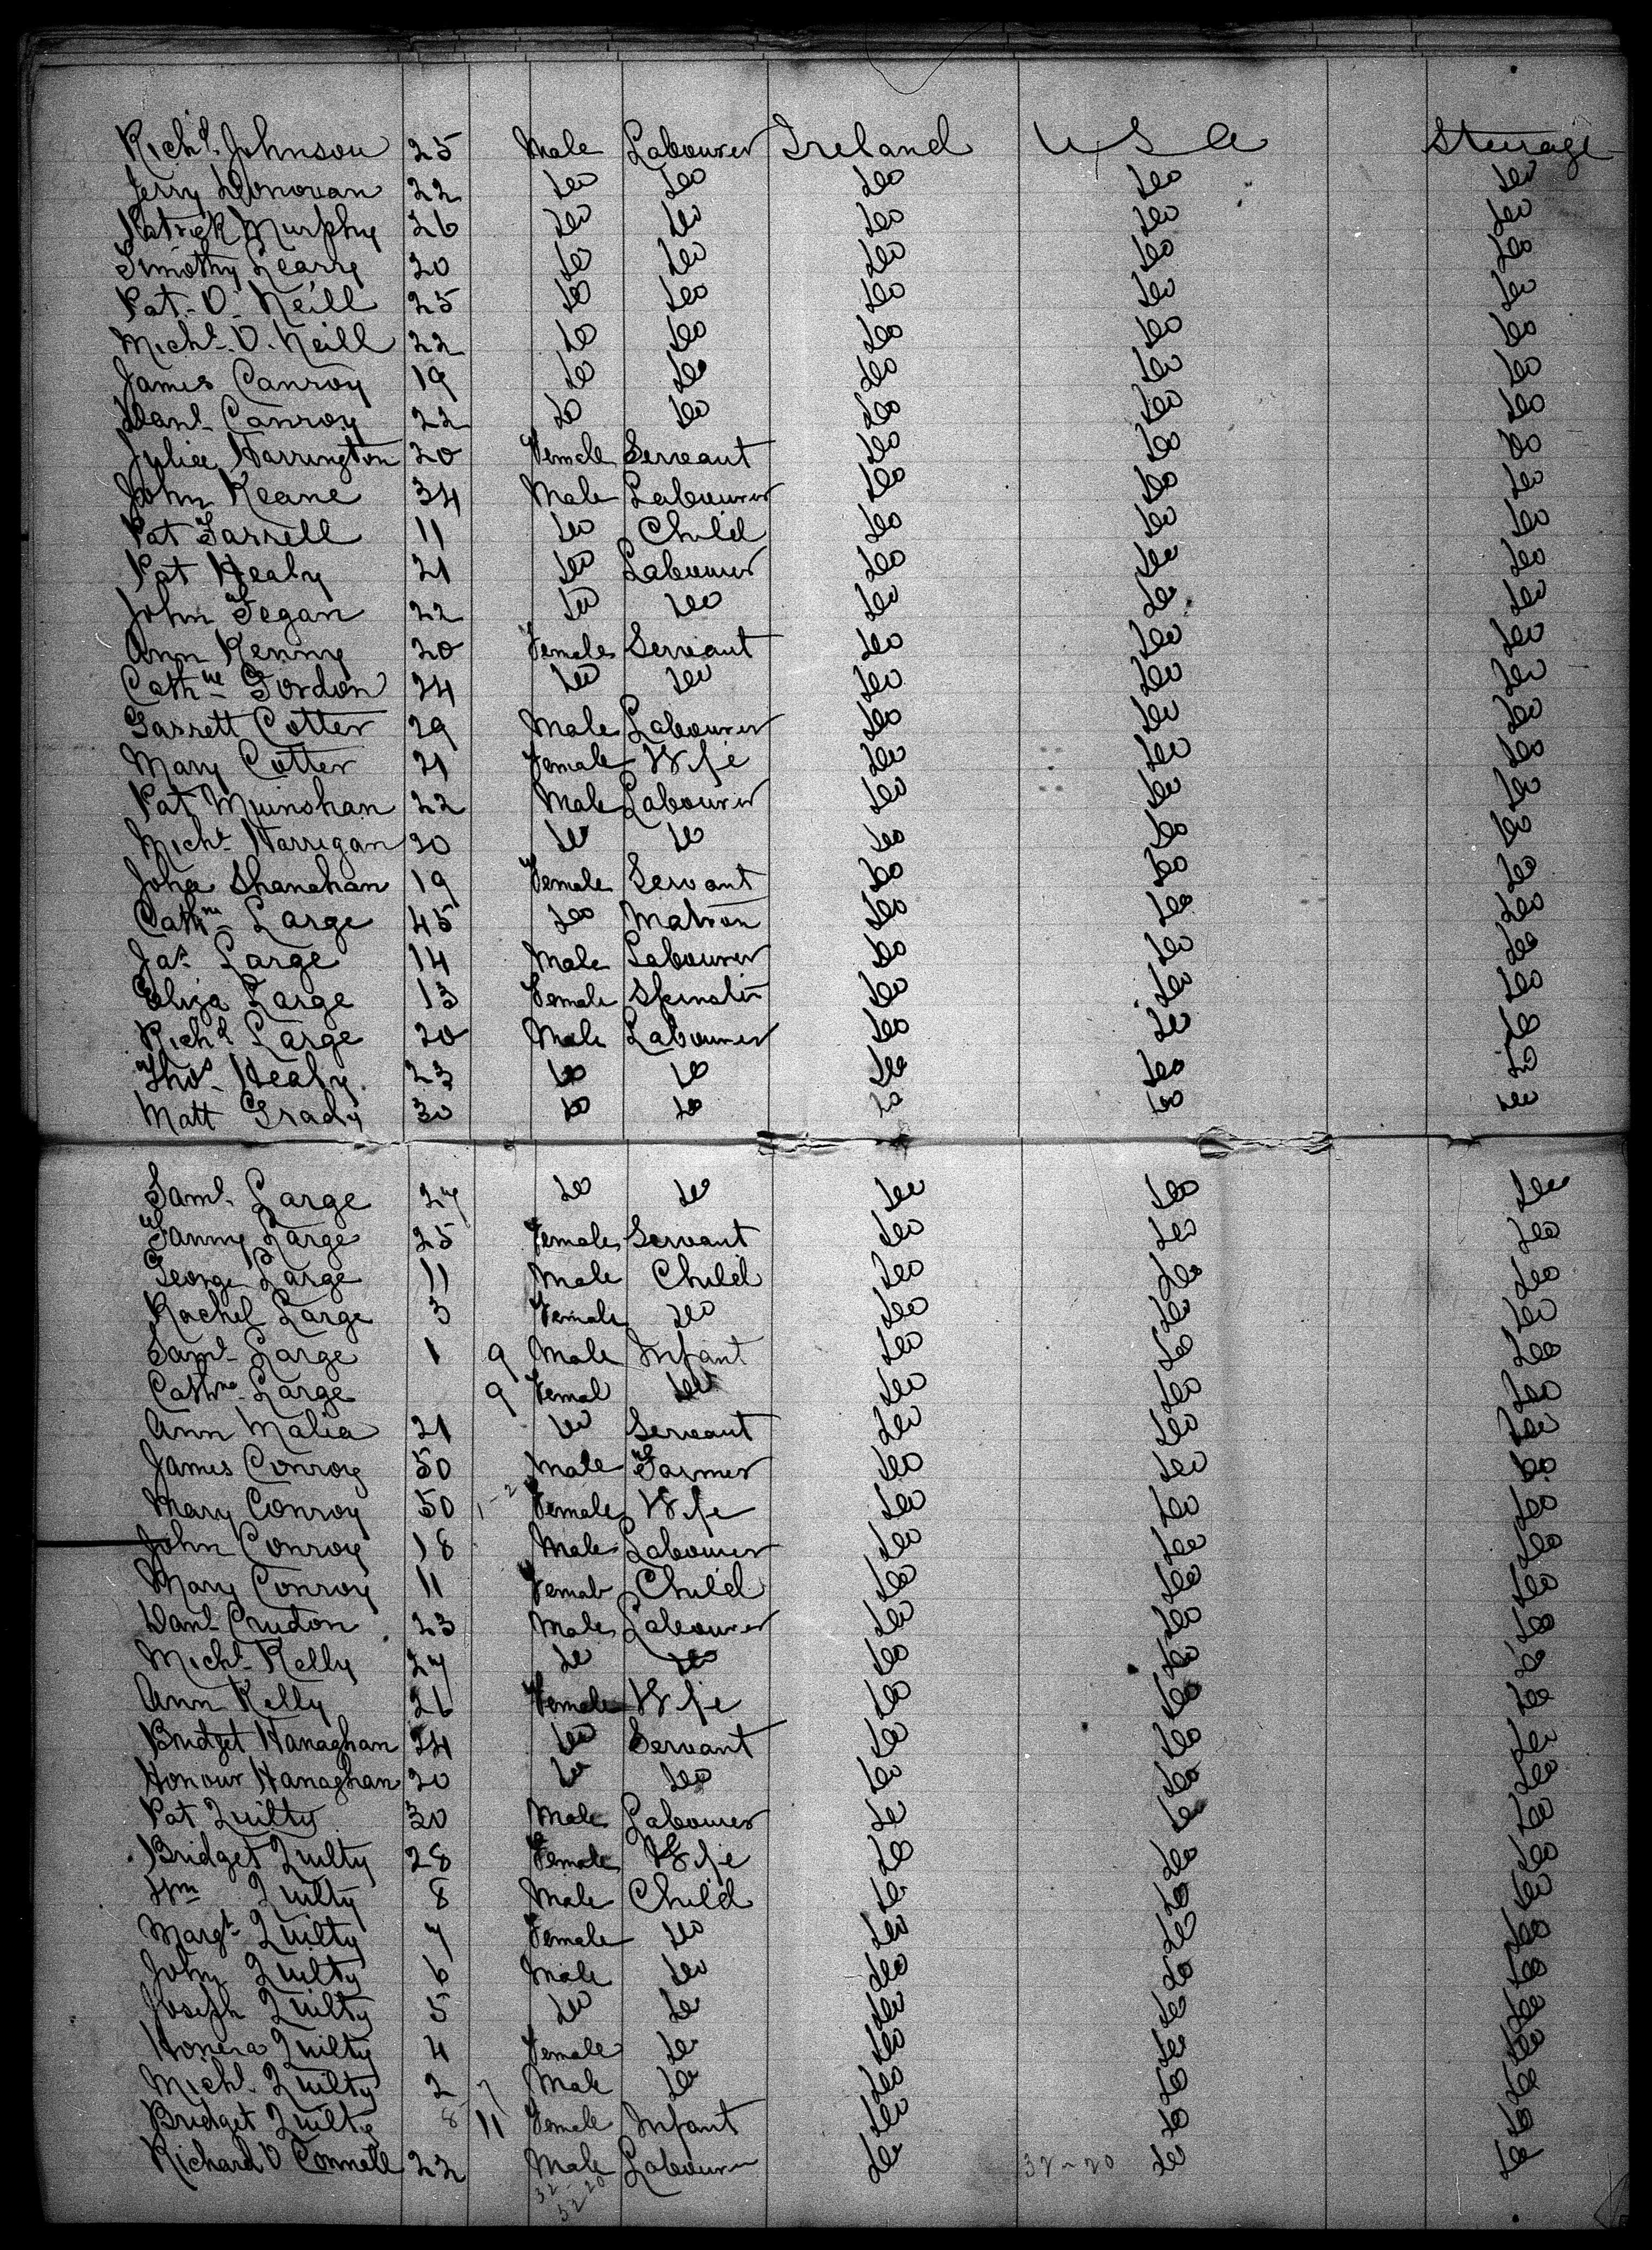 Richd. Johnson 25 Male Labourer Ireland U S A Steerage
Jerry Donovan 22 Do Do Do Do Do
Patrick Murphy 26 Do Do Do Do Do
Timothy Leary 20 Do Do Do Do Do
Pat. O. Neill 25 Do Do Do Do Do
Michl. O. Neill 22 Do Do Do Do Do
James Canroy 19 Do Do Do Do Do
Danl Canroy 22 Do Do Do Do Do
Julia Harrington 20 Female Servant Do Do Do
John Keane 34 Male Labourer Do Do Do
Pat Farrell 11 Do Child Do Do Do
Pat Healy 21 Do Labourer Do Do Do
John Fegan 22 Do Do Do Do Do
Ann Kenny 20 Female Servant Do Do Do
Cathne Gordon 24 Do Do Do Do Do
Garrett Cotter 29 Male Labourer Do Do Do
Mary Cotter 21 Female Wife Do Do Do
Pat Muinshan 22 Male Labourer Do Do Do
Michl Harrigan 20 Do Do Do Do Do
Joha Shanahan 19 Female Servant Do Do Do
Cathne Large 45 Do Matron Do Do Do
Jas Large 14 Male Labourer Do Do Do
Eliza Large 13 Female Spinster Do Do Do
Richd Large 20 Male Labourer Do Do Do
Thos Healy 23 Do Do Do Do Do
Matt Grady 30 Do Do Do Do Do
Saml. Large 27 Do Do Do Do Do
Fanny Large 25 Female Servant Do Do Do
George Large 11 Male Child Do Do Do
Rachel Large 3 Female Do Do Do Do
Saml Large 1 9 Male Infant Do Do Do
Cathne Large 9 Femal Do Do Do Do
Ann Malia 21 Do Servant Do Do Do
James Conroy 50 Male Farmer Do Do Do
Mary Conroy 50 Female Wife Do Do Do
John Conroy 18 Male Labourer Do Do Do
Mary Conroy 11 Female Child Do Do Do
Danl Crudon 23 Male Labourer Do Do Do
Michl Kelly 27 Do Do Do Do Do
Ann Kelly 26 Female Wife Do Do Do
Bridget Hanaghan 24 Do Servant Do Do Do
Honour Hanaghan 20 Do Do Do Do Do
Pat Quilty 30 Male Labourer Do Do Do
Bridget Quilty 28 Female Wife Do Do Do
Wm Quilty 8 Male Child Do Do Do
Margt Quilty 7 Female Do Do Do Do
John Quilty 6 Male Do Do Do Do
Joseph Quilty 5 Do Do Do Do Do
Honera Quilty 4 Female Do Do Do Do
Michl Quilty 2 Male Do Do Do Do
Bridget Quilty 11 Female Infant Do Do Do
Richard O Connell 22 Male Labourer Do 32-20 Do Do